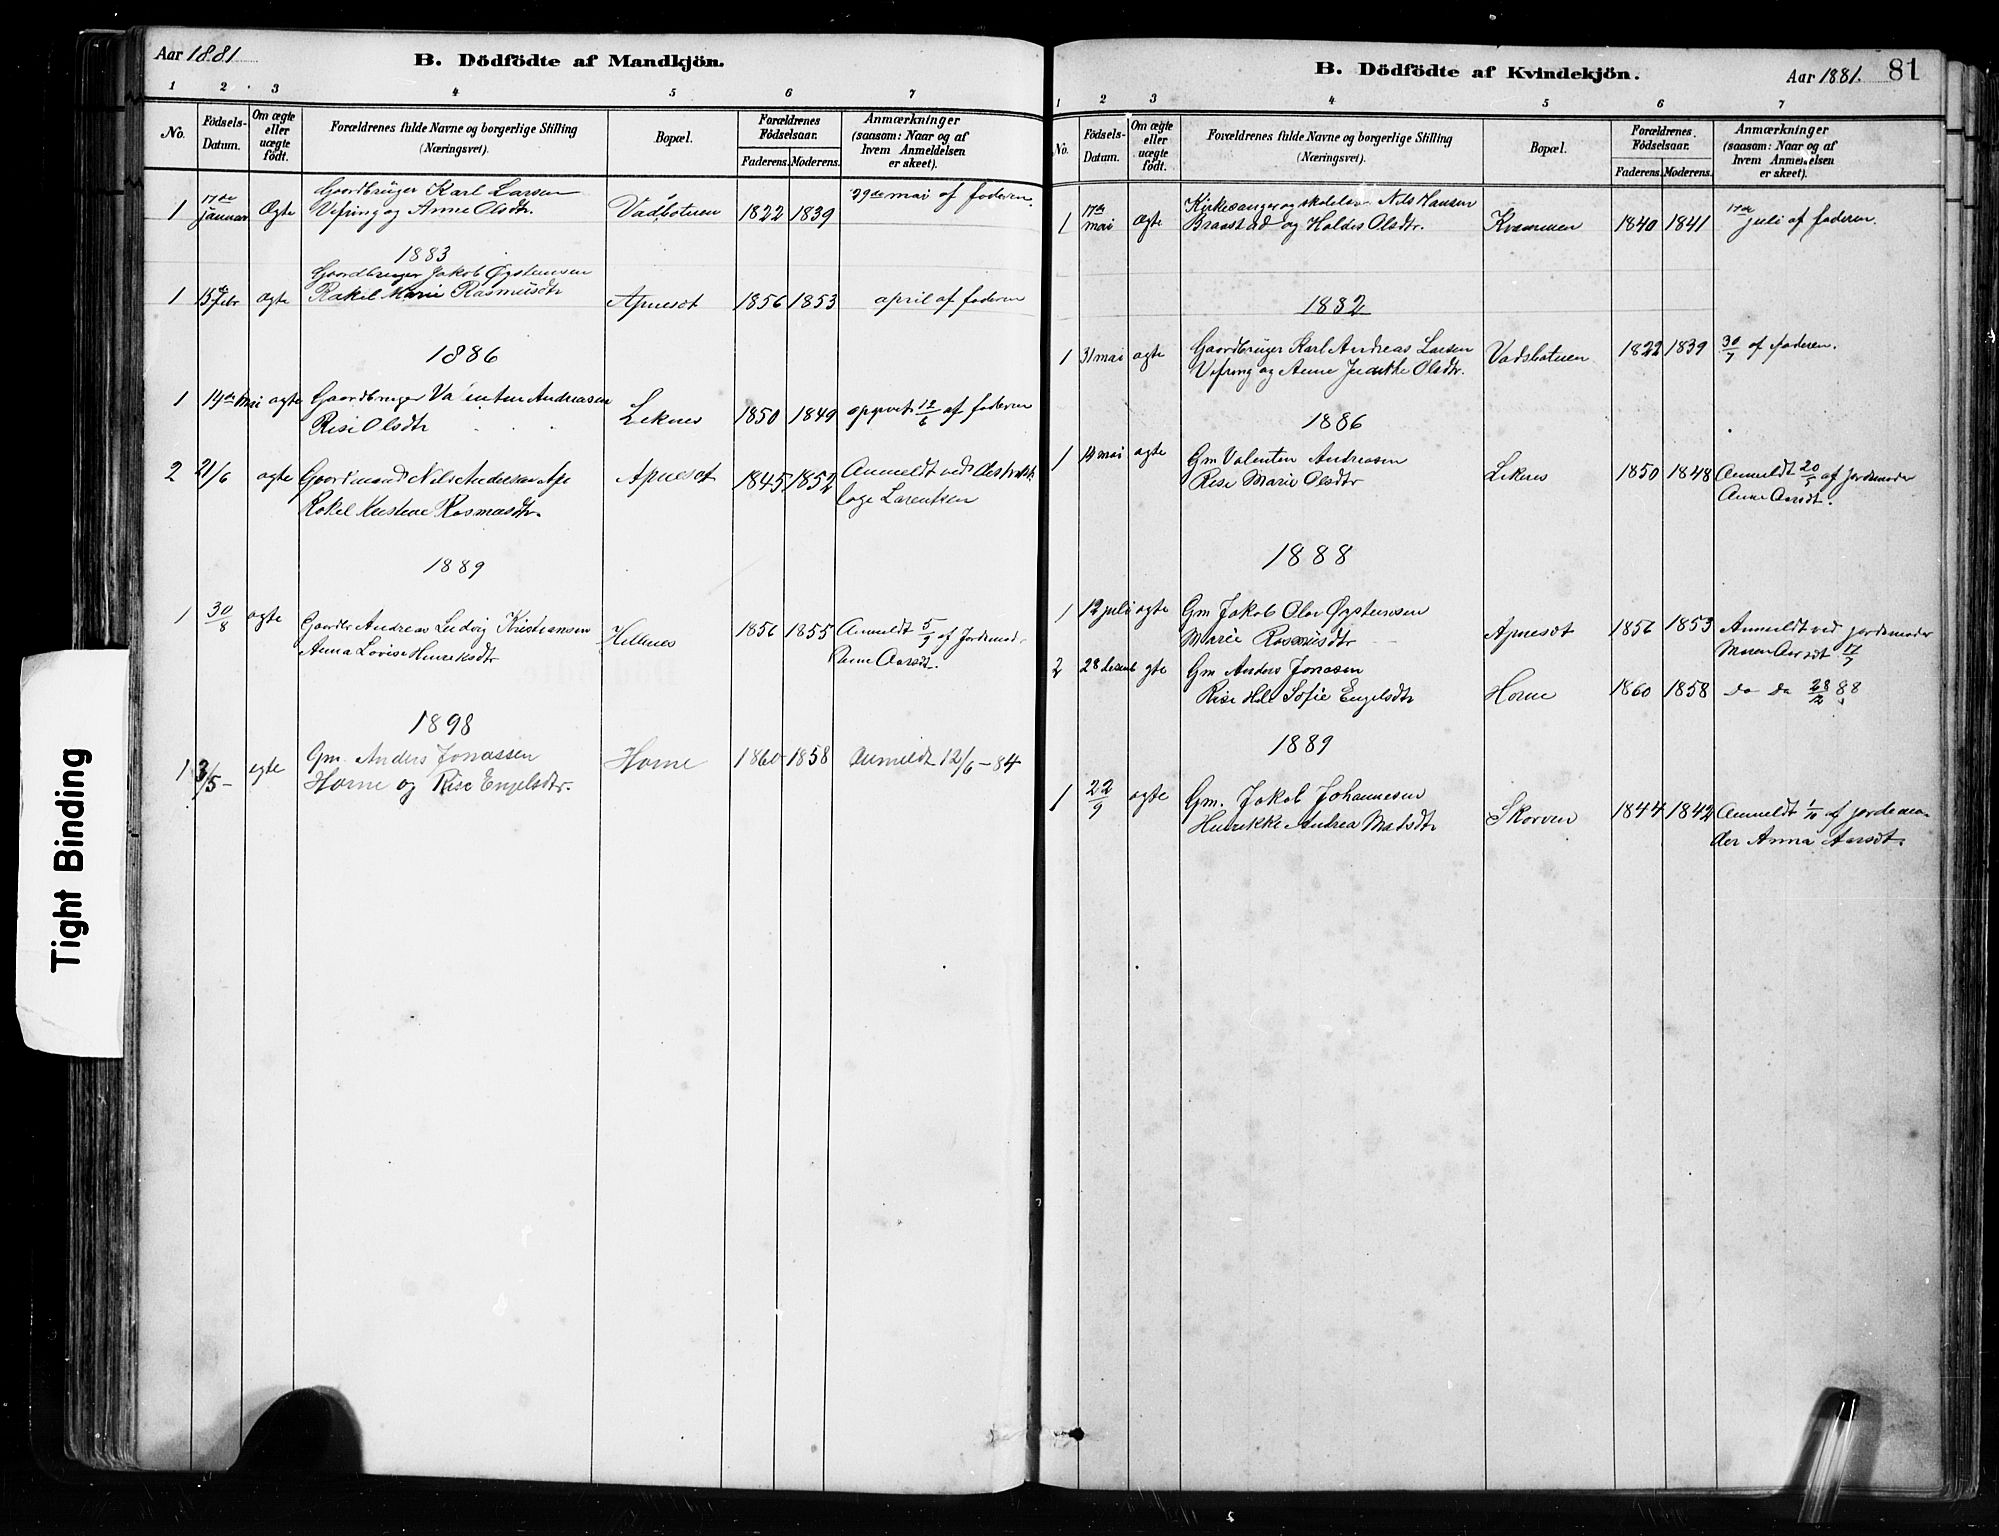 Aar 1881.
B. Dödfödte af Mandkjön.
1 2 3 4 5 6 7
No. Födsels-Datum. Om ægte eller uægte födt. Forældrenes fulde Navne og borgerlige Stilling (Næringsvei). Bopæl. Forældrenes Födselsaar. Faderens. Moderens. Anmærkninger (saasom: Naar og af hvem Anmeldelsen er skeet).
1 17de januar Ægte Gaardbruger Karl Larsen Vadbotnen 1822 1839 29de mai af faderen.
Vefring og Anne Olsdtr.
1883
1 15de febr Ægte Gaardbruger Jakob Øystensen Apnesøt 1856 1853 april af faderen
Rakel Marie Rasmusdtr
1886
1 14de mai ægte Gaardbruger Valentin Andreasen Leknes 1850 1849 12/6 af faderen
Risi Olsdtr
2 21/6 ægte Gaardmand Nils Andersen Apnesøt 1845 1852 Anmeldt ved
Rakel Rasmusdtr. læge Larentsen
1889
1 30/8 ægte Andreas Ludvig Kristiansen Hellenes 1856 1855 Anmeldt 5/9 af Jordemod.
Anna Lovise Henriksdtr Anne Aarsdt.
1898
1 3/5- egte Gm. Anders Jonassen Horne 1860 1858 Anmeldt 12/6-84
Horne og Rise Engelsdtr.
Tight Binding
B. Dödfödte af Kvindekjön.
Aar 1881. 81
1 2 3 4 5 6 7
No. Födsels-Datum. Om ægte eller uægte födt. Forældrenes fulde Navne og borgerlige Stilling (Næringsvei). Bopæl. Forældrenes Födselsaar. Faderens. Moderens. Anmærkninger (saasom: Naar og af hvem Anmeldelsen er skeet).
1 17de mai Ægte Kirkesanger og skolelær Nils Hansen Kvammen 1840 1841 17de juli af faderen.
Braastad og Haldis Olsdtr.
1882
1 31 mai ægte Gaardbruger Karl Andreas Larsen Vadsbotnen 1822 1839 30/7 af faderen.
Vefring og Anne Judikke Olsdtr.
1886
1 14 mai ægte Gm Valentin Andreasen Leknes 1850 1848 Anmeldt 20/5 af jordemoder
Rise Marie Olsdtr Anne Aarsdt.
1888
1 12 juli ægte Gm Jakob Olav Øystensen Apnesøt 1856 1853 Anmeldt ved jordemoder
Marie Rasmusdtr Maren Aarsdt 17/7
2 28 desemb gte Gm Anders Jonasen
Rise Hel. Sofie Engelsdtr Horne 1860 1858 Do Do 28/12 88
1889
1 22/9 ægte Gm. Jakob Johannesen Skorven 1844 1842 Anmeldt 1/10 af jordemo-
Henrikke Andrea Madsdtr der Anna Aarsdt.